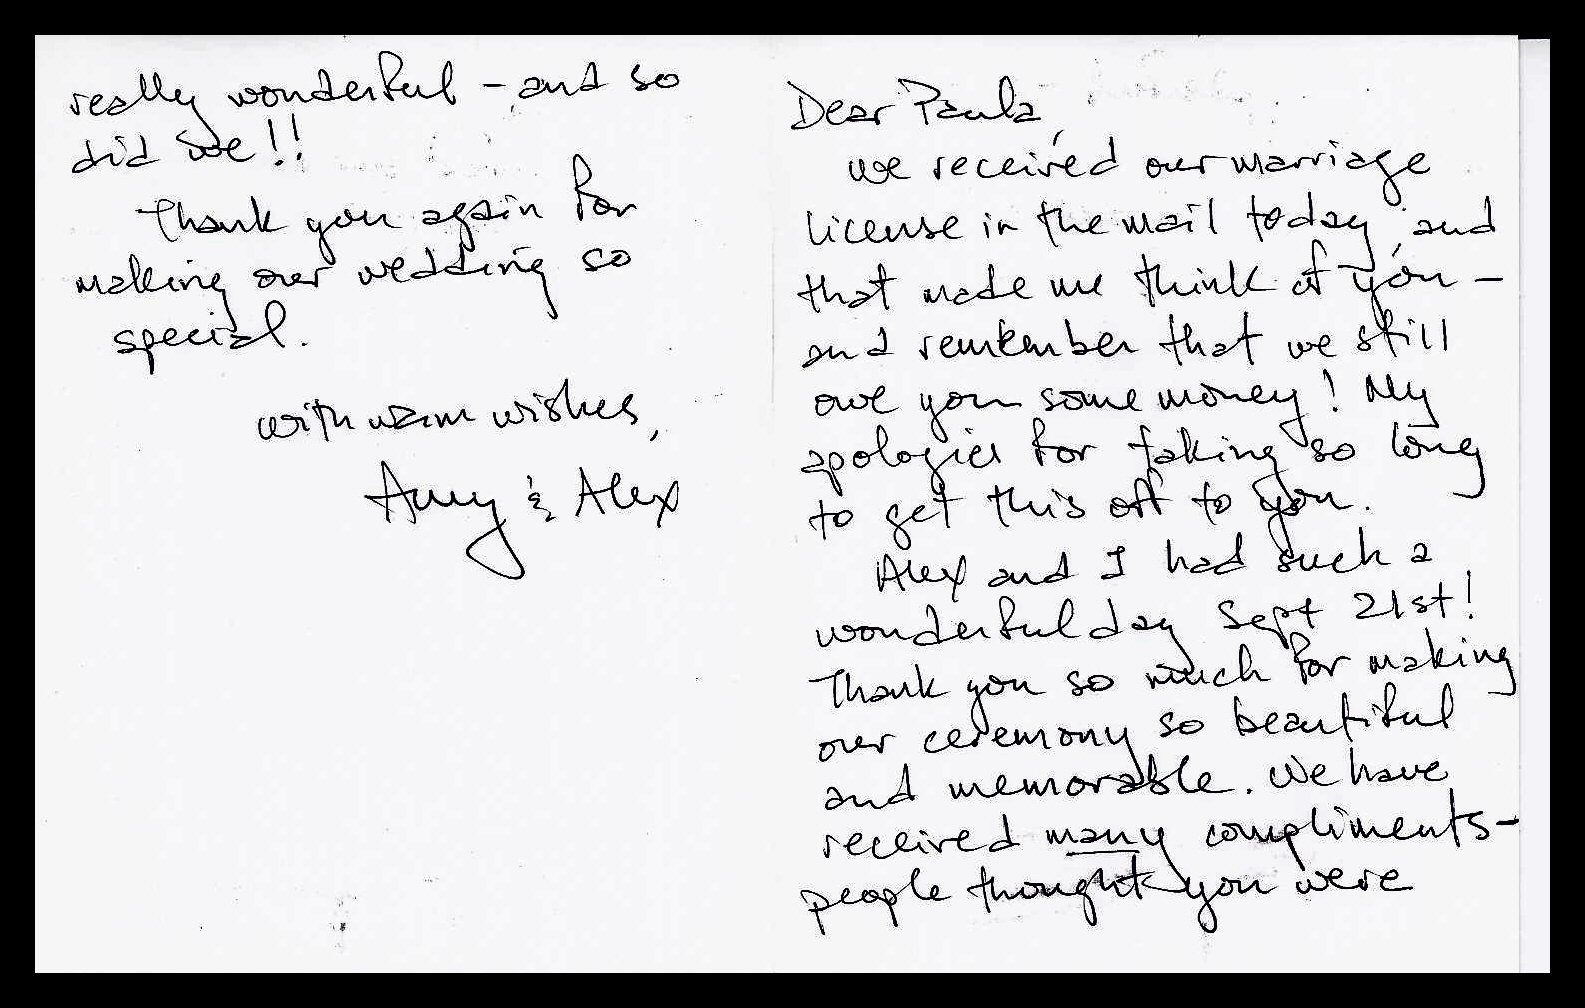 Dear Paula,
we received our marriage
license in the mail today, and
that made me think of you -
and remember that we still
owe you some money! My
apologies for taking so long
to get this off to you.
Alex and I had such a
wonderful day Sept 21st!
Thank you so much for making
our ceremony so beautiful
and memorable. We have
received many compliments -
people thought you were
really wonderful - and so
did we!!
Thank you again for
making our wedding so
special.
with warm wishes,
Amy & Alex